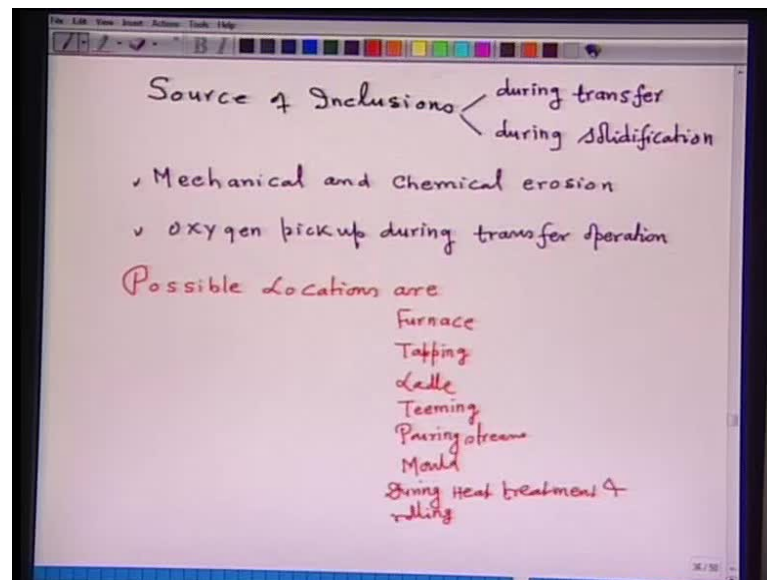 File Edit View Insert Actions Tools Help
B I
Source of Inclusions
during transfer
during solidification
Mechanical and Chemical erosion
Oxygen pick up during transfer operation
Possible Locations are
Furnace
Tapping
Ladle
Teeming
Pouring stream
Mould
During Heat treatment &
rolling
36/50